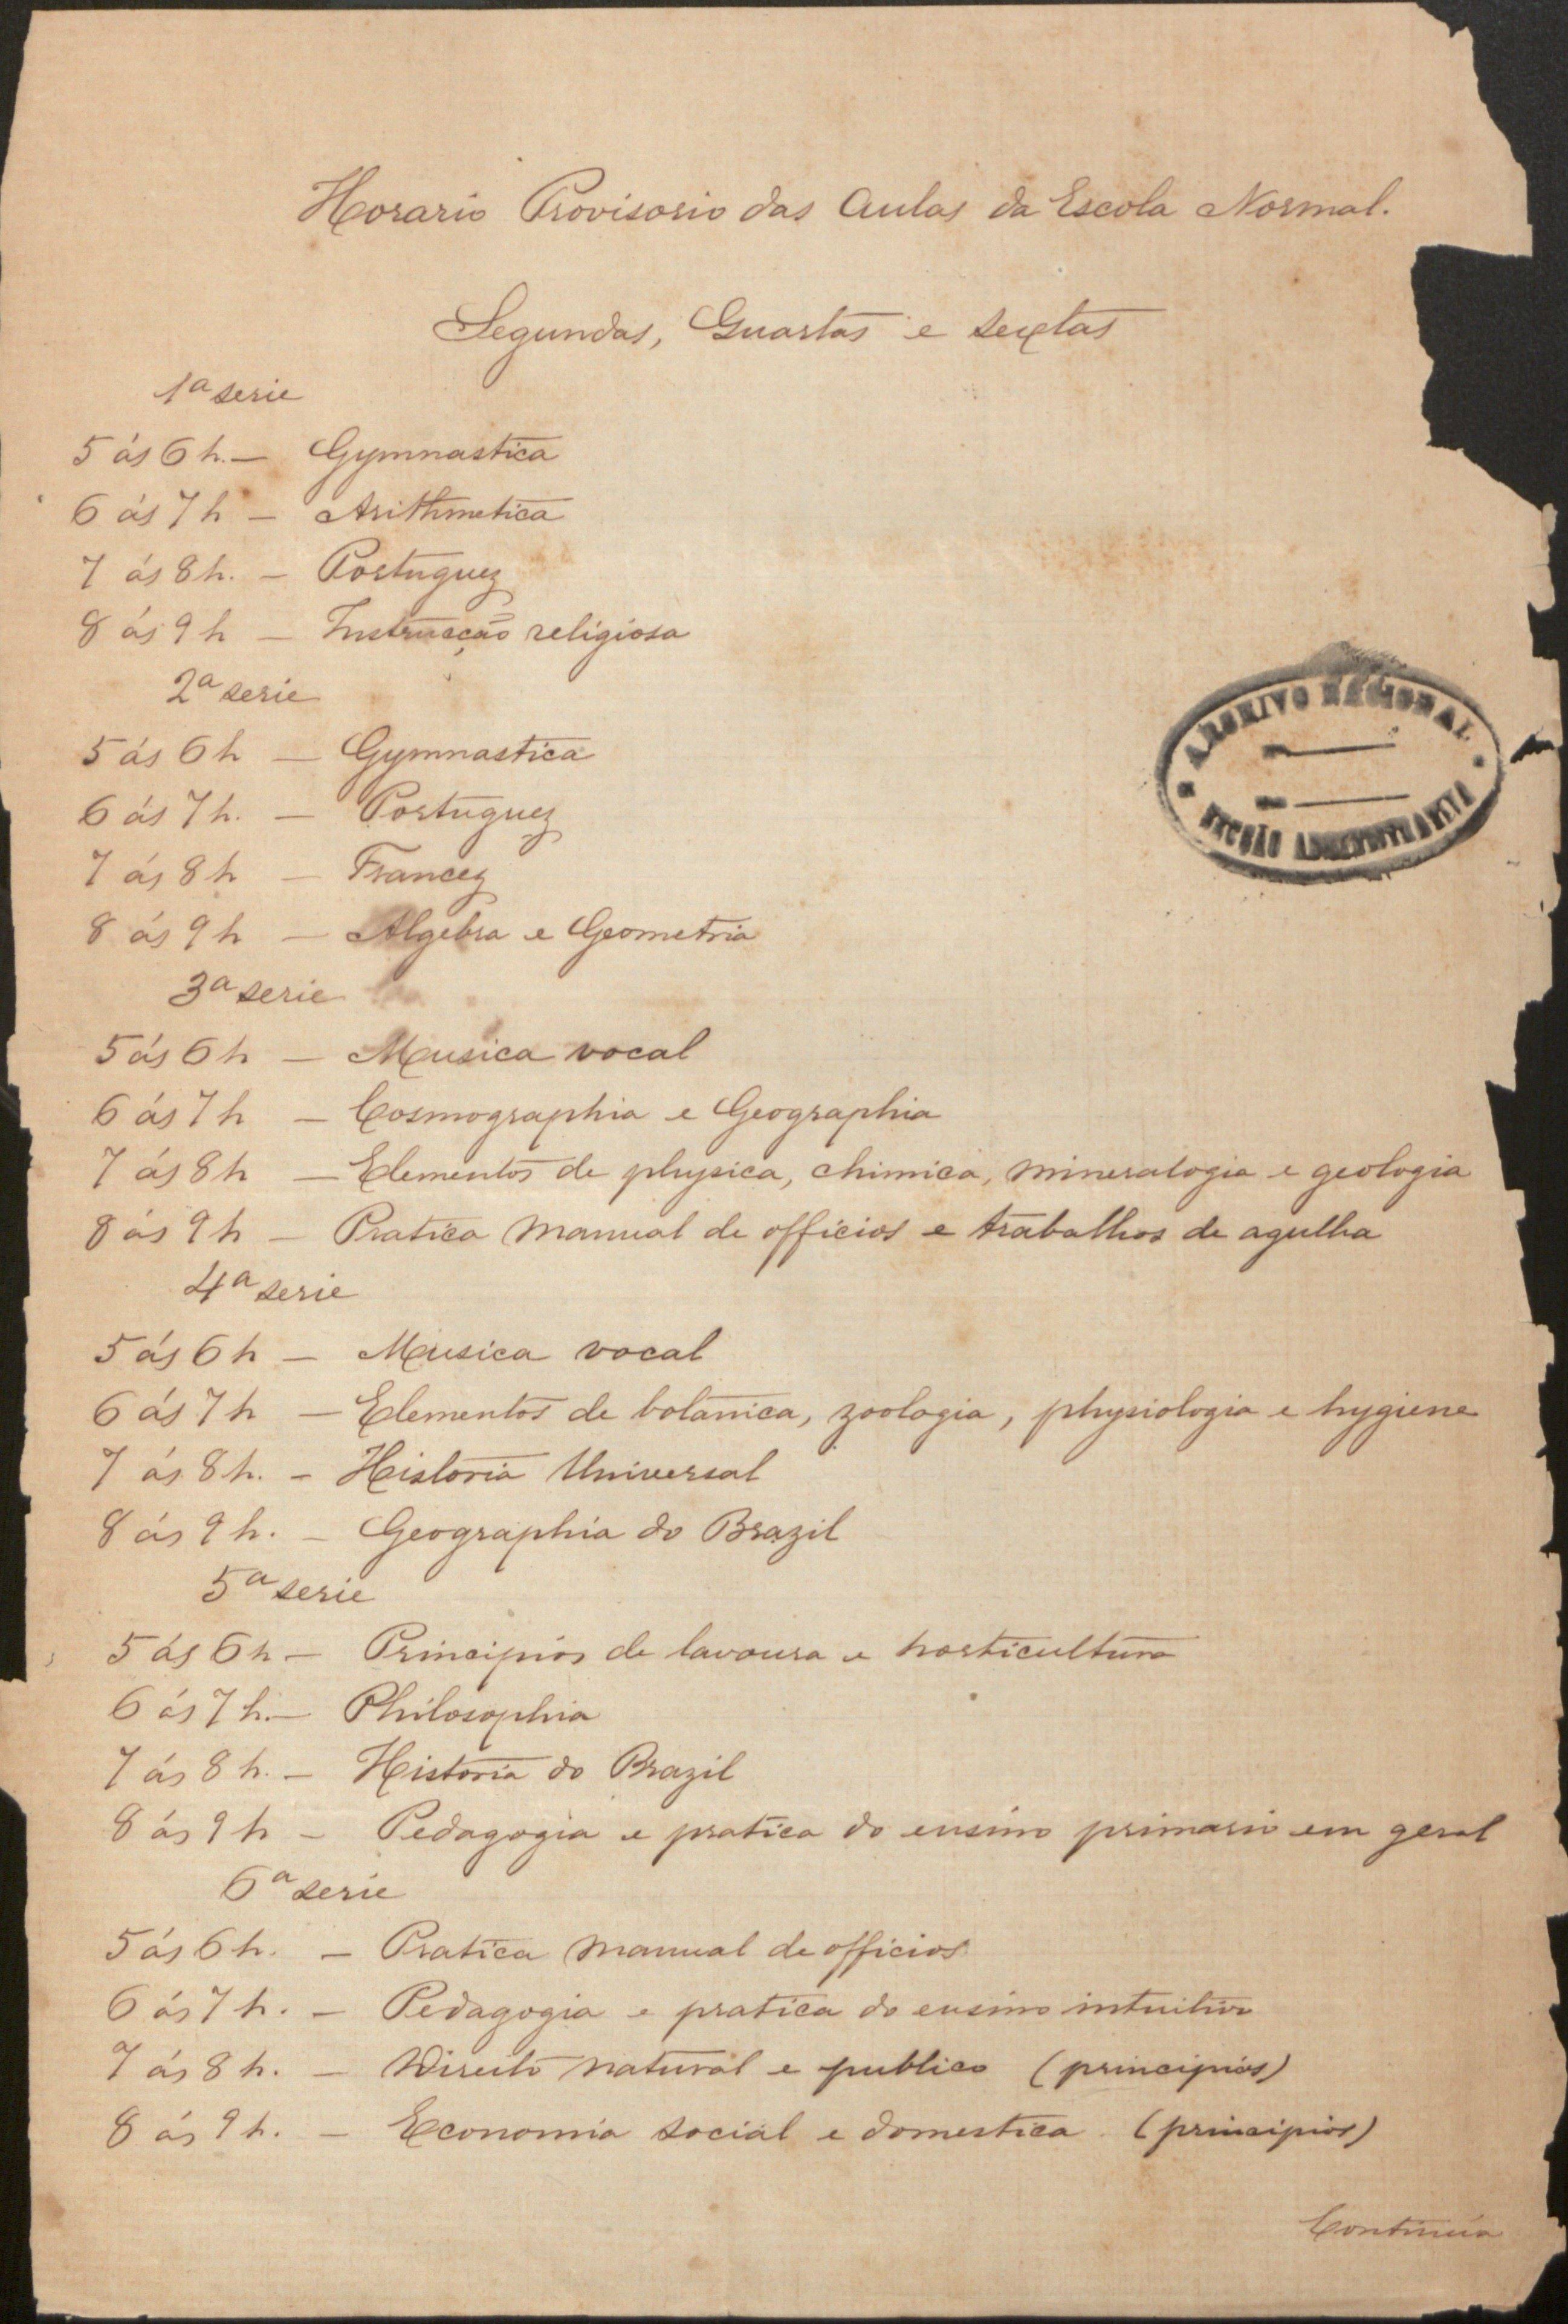 Horario Provisorio das Aulas da Escola Normal.
Segundas, Quartas e sextas
1ª serie
5 ás 6 h. — Gymnastica
6 ás 7 h — Arithmetica
7 ás 8 h. — Portuguez
8 ás 9 h — Instrucção religiosa
2ª serie
5 ás 6 h — Gymnastica
6 ás 7 h. — Portuguez
7 ás 8 h — Francez
8 ás 9 h — Algebra e Geometria
3ª serie
5 ás 6 h — Musica vocal
6 ás 7 h — Cosmographia e Geographia
7 ás 8 h — Elementos de physica, chimica, mineralogia e geologia
8 ás 9 h — Pratica manual de officios e trabalhos de agulha
4ª serie
5 ás 6 h — Musica vocal
6 ás 7 h — Elementos de botanica, zoologia, physiologia e hygiene
7 ás 8 h. — Historia Universal
8 ás 9 h. — Geographia do Brazil
5ª serie
5 ás 6 h — Principios de lavoura e horticultura
6 ás 7 h. — Philosophia
7 ás 8 h. — Historia do Brazil
8 ás 9 h — Pedagogia e pratica do ensino primario em geral
6ª serie
5 ás 6 h. — Pratica manual de officios
6 ás 7 h. — Pedagogia e pratica do ensino intuitivo
7 ás 8 h. — Direito natural e publico (principios)
8 ás 9 h. — Economia social e domestica (principios)
Continúa
ARCHIVO NACIONAL
SECÇÃO ADMINISTRATIVA